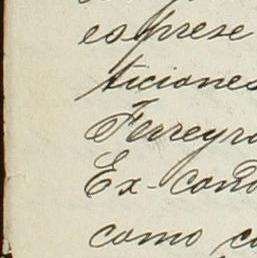 esprese
ticiones
Ferreyra
Ex-cond
como co